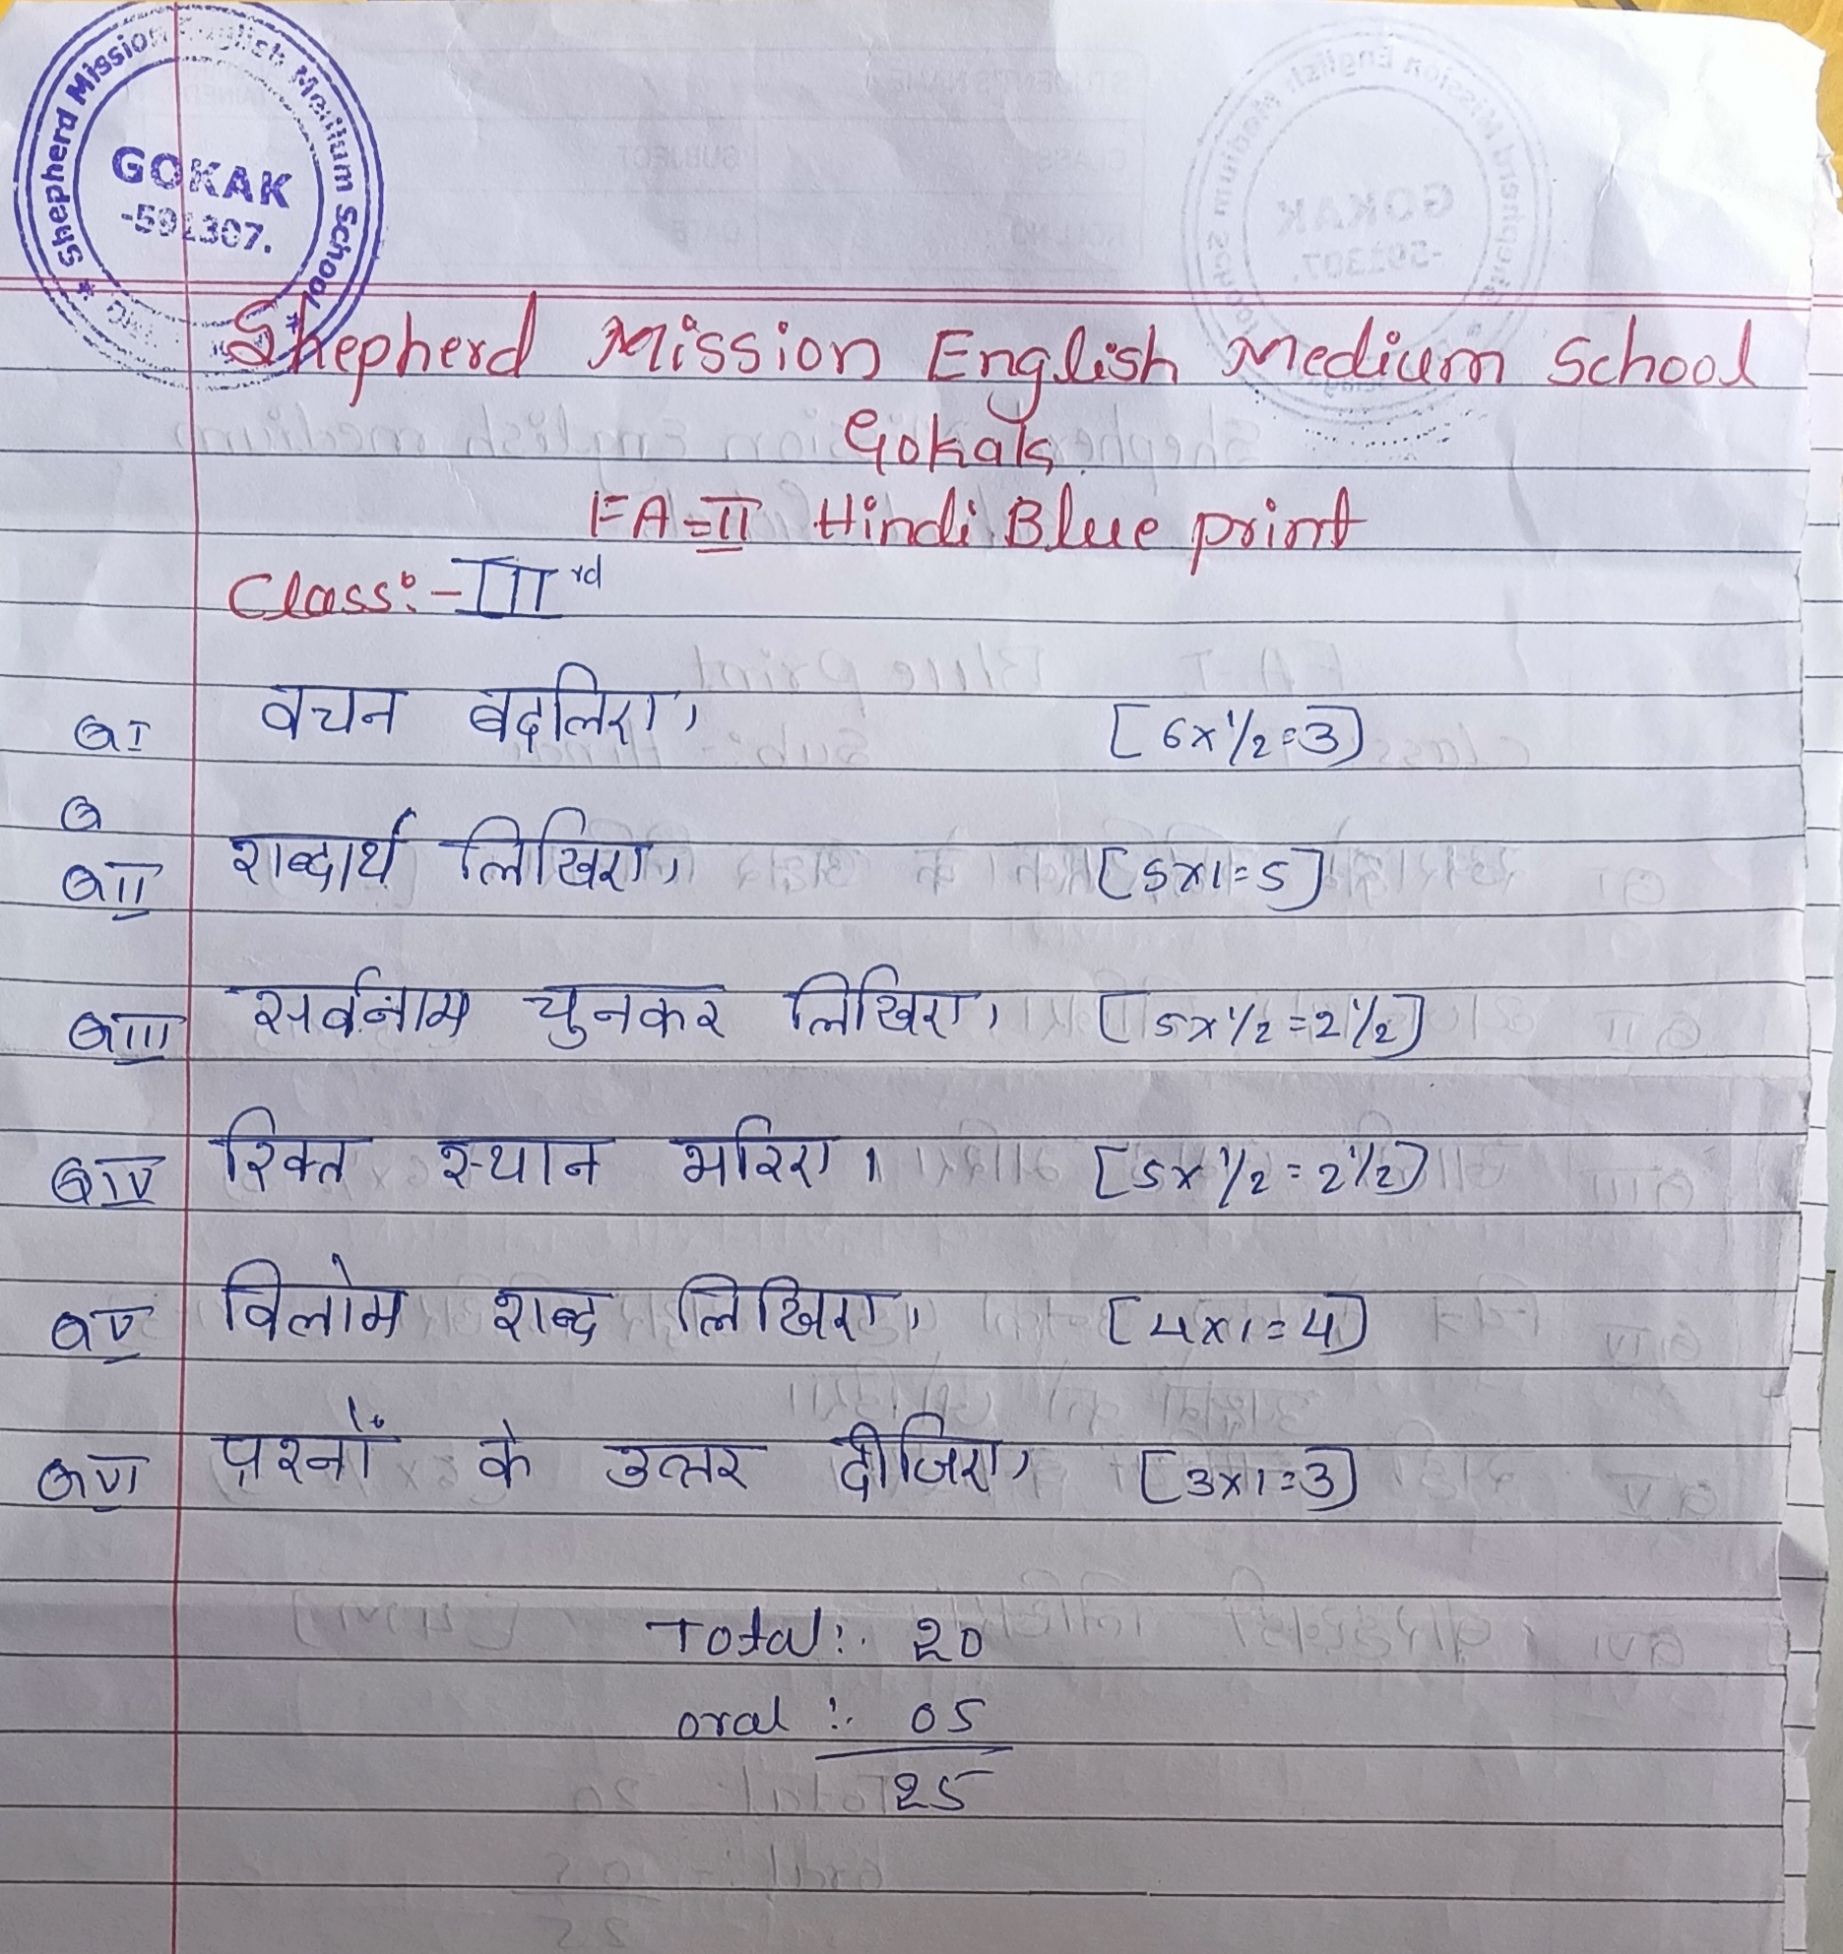 Shepherd Mission English Medium School
GOKAK
-591307.
Shepherd Mission English Medium School
Gokak
FA-II Hindi Blue print
Class:- IIIrd
QI वचन बदलिए। [6x1/2=3]
Q
QII शब्दार्थ लिखिए। [5x1=5]
QIII सर्वनाम चुनकर लिखिए। [5x1/2=2 1/2]
QIV रिक्त स्थान भरिए। [5x1/2=2 1/2]
QV विलोम शब्द लिखिए। [4x1=4]
QVI प्रश्नों के उत्तर दीजिए। [3x1=3]
Total:- 20
oral :- 05
25